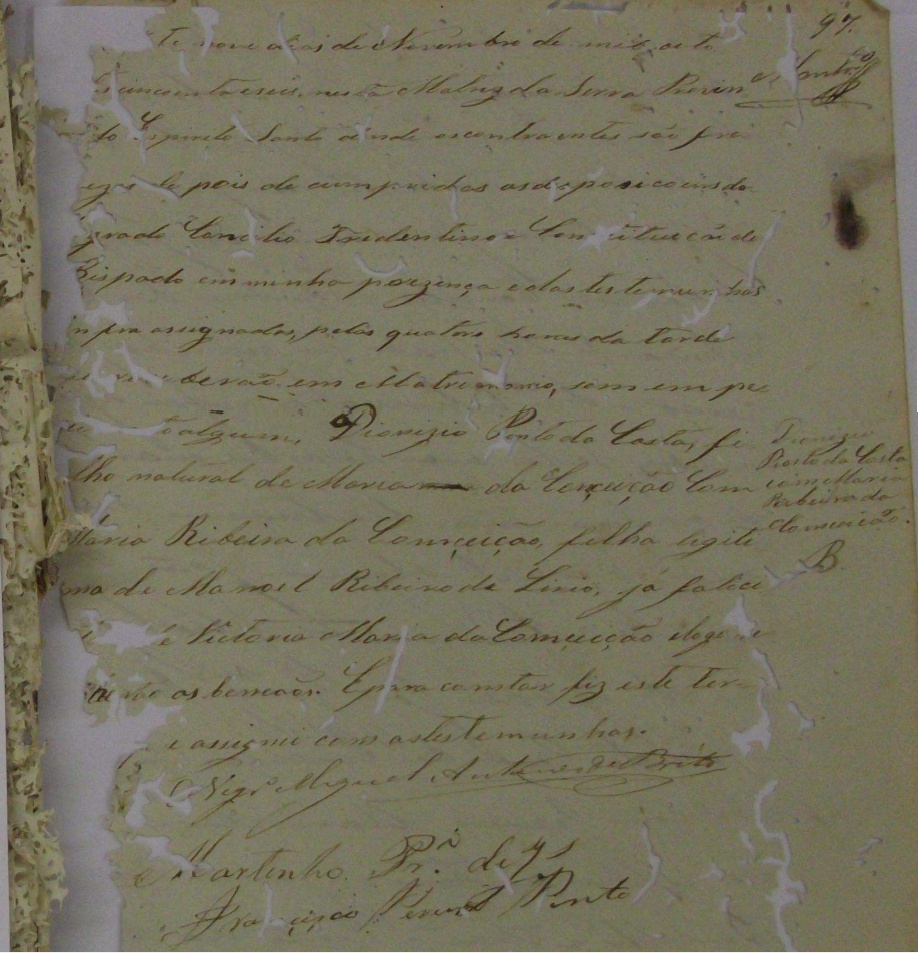 97.
te nove dias de Novembro de mil, oito
s cincoenta e seis, nesta Matriz da Serra Provin
do Espirito Santo donde os contraentes são fre
ezes de pois de cumpridas as desposicoens do
grado Concilio Tredentino e Constituição do
Bispado em minha prezença e das testemunhas
in fra assignadas, pelas quatro horas da tarde
ceberão em Matrimonio, sem em pe
to algum, Dionizio Porto da Costa, fi
lho natural de Maria da Conceição Com
Maria Ribeira da Conceição, filha legiti
ma de Manoel Ribeiro de Lirio, já faleci
e Victoria Maria da Conceição e logo
as bencãos. E para constar fiz este ter
e assignei com as testemunhas.
Vigrº Miguel Antunes de Brito
Martinho Prª de
Francisco Pinto
Dionizio
Porto da Costa
com Maria
Ribeira da
Conceicão.
B.